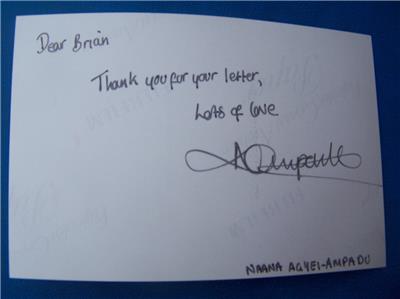 Dear Brian
Thank you for your letter,
Lots of love
NAANA AGYEI-AMPADU